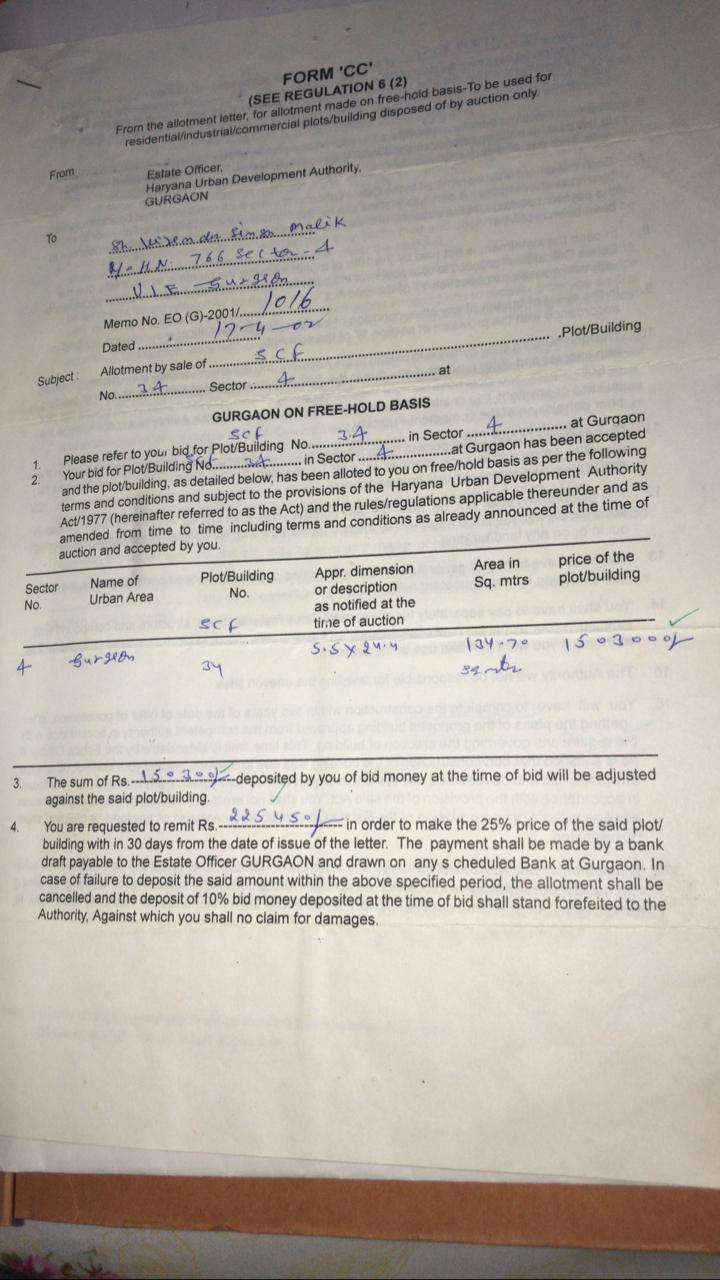 FORM 'CC'
(SEE REGULATION 6 (2)
From the allotment letter, for allotment made on free-hold basis-To be used for
residential/industrial/commercial plots/building disposed of by auction only.
From
Estate Officer,
Haryana Urban Development Authority,
GURGAON
To
Sh. Singh Malik
H.N. 766 Sector-4
U.I.E Gurgaon
Memo No. EO (G)-2001/.....1016
Dated 17-4-02
Subject : Allotment by sale of SCF .Plot/Building
No. 34 Sector 4 at
GURGAON ON FREE-HOLD BASIS
1. Please refer to your bid for Plot/Building No. SCF 34 in Sector 4 at Gurgaon
2. Your bid for Plot/Building No. SCF 34 in Sector 4 at Gurgaon has been accepted
and the plot/building, as detailed below, has been alloted to you on free/hold basis as per the following
terms and conditions and subject to the provisions of the Haryana Urban Development Authority
Act/1977 (hereinafter referred to as the Act) and the rules/regulations applicable thereunder and as
amended from time to time including terms and conditions as already announced at the time of
auction and accepted by you.
Sector No.
Name of Urban Area
Plot/Building No.
Appr. dimension or description as notified at the time of auction
Area in Sq. mtrs
price of the plot/building
4 Gurgaon SCF 34 5.5 X 24.4 134.20 sq mtr 1503000/-
3. The sum of Rs. 150300/- deposited by you of bid money at the time of bid will be adjusted
against the said plot/building.
4. You are requested to remit Rs. 225450/- in order to make the 25% price of the said plot/
building with in 30 days from the date of issue of the letter. The payment shall be made by a bank
draft payable to the Estate Officer GURGAON and drawn on any s cheduled Bank at Gurgaon. In
case of failure to deposit the said amount within the above specified period, the allotment shall be
cancelled and the deposit of 10% bid money deposited at the time of bid shall stand forefeited to the
Authority, Against which you shall no claim for damages.